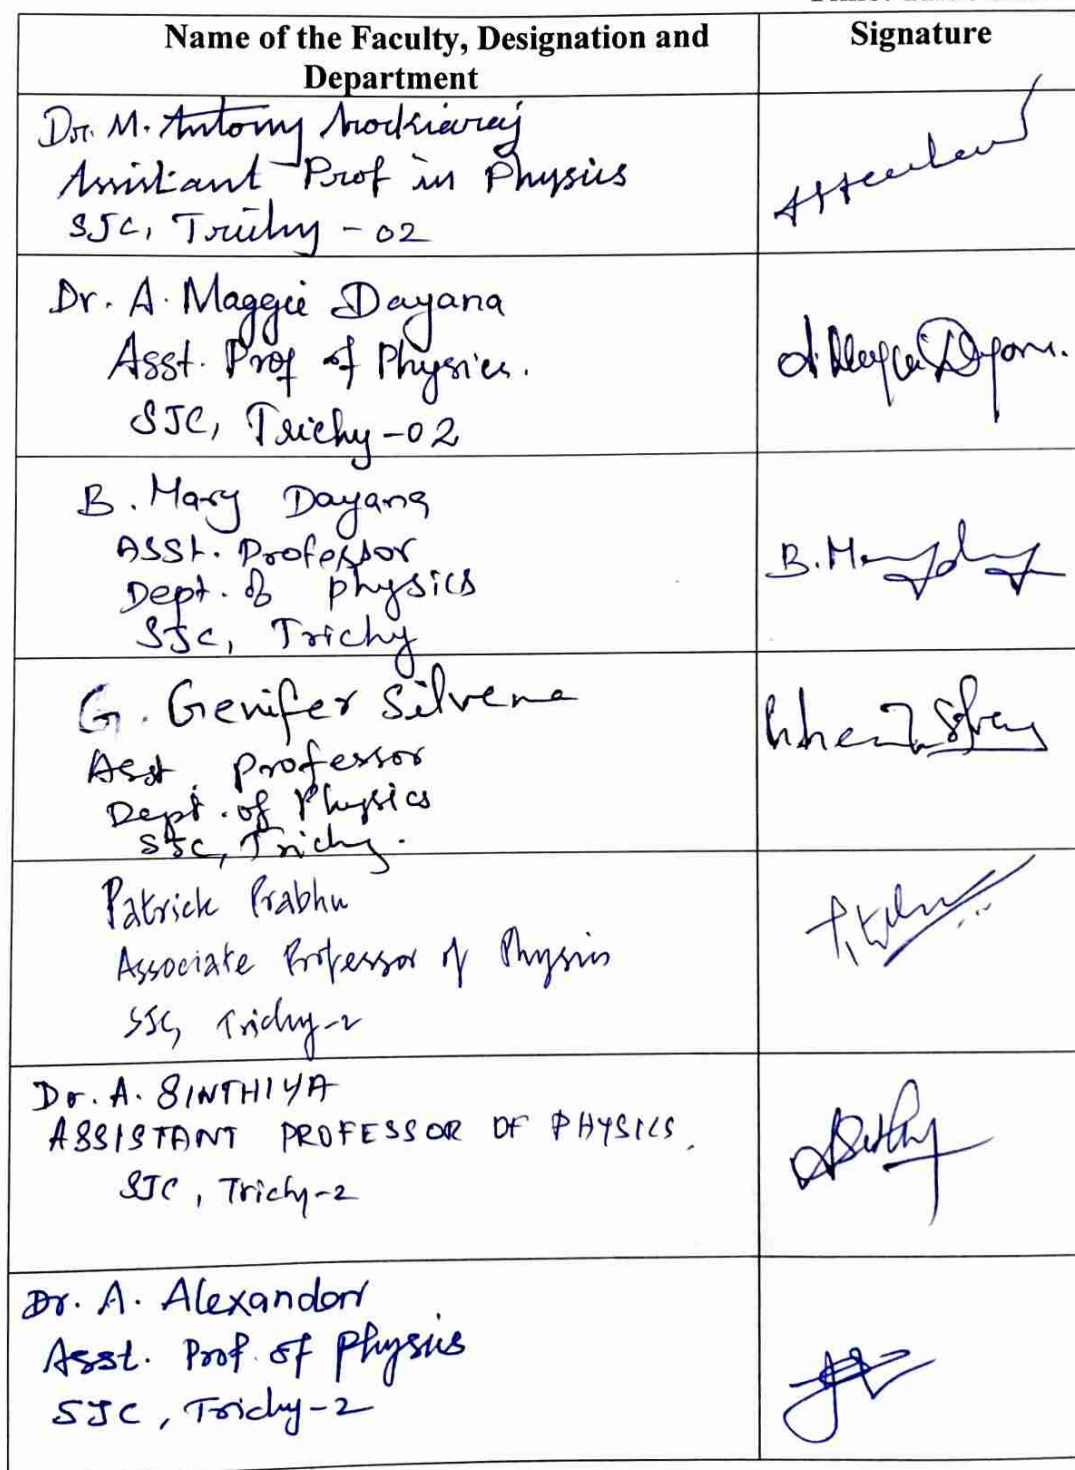 Name of the Faculty, Designation and Signature
Department
Dr. M. Antony
Assistant Prof in Physics
SJC, Trichy - 02
Dr. A. Maggie Dayana
Asst. Prof of Physics.
SJC, Trichy - 02
B. Mary Dayana
ASSt. Professor
Dept. of physics
SJC, Trichy
B. M
G. Genifer Silvena
Asst. Professor
Dept. of Physics
SJC, Trichy.
Patrick Prabhu
Associate Professor of Physics
SJC, Trichy-2
Dr. A. SINTHIYA
ASSISTANT PROFESSOR OF PHYSICS.
SJC, Trichy-2
Dr. A. Alexandar
Asst. Prof. of Physics
SJC, Trichy-2